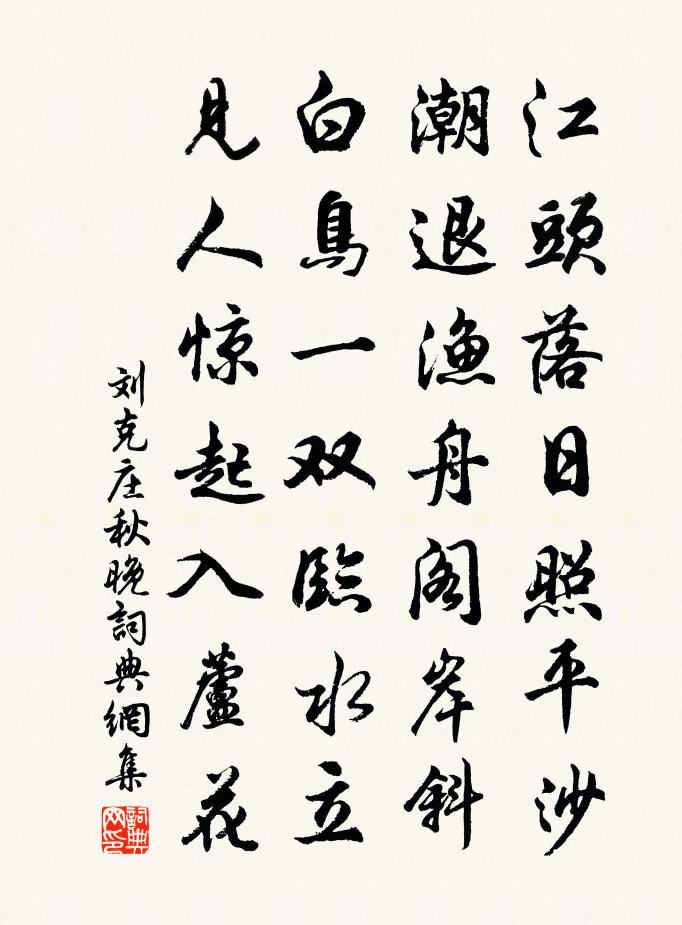 江頭落日照平沙
潮退漁舟阁岸斜
白鳥一双臨水立
見人惊起入蘆花
刘克庄秋晚詞典網集
詞典网印